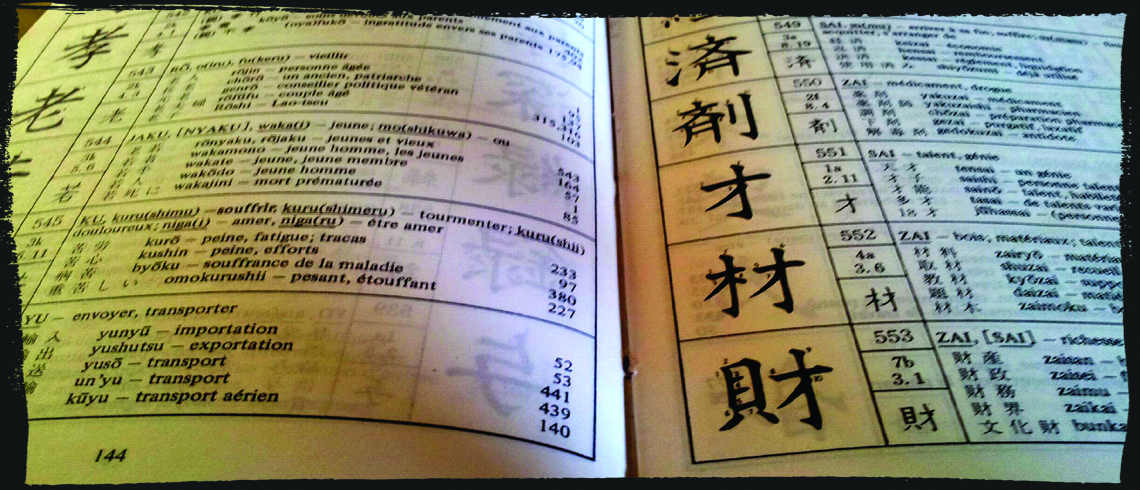 孝
(親)孝
kōyō — soins dévoués aux parents
(親)不孝 (oya)fukō — ingratitude envers ses parents 175,94
老
543 RŌ, o(iru), fu(keru) — vieillir
rōjin — personne âgée 1
chōrō — un ancien, patriarche
genrō — conseiller politique vétéran 137
rōfūfu — couple âgé 315,316
rōshi — Lao-tseu 103
544 JAKU, [NYAKU], waka(i) — jeune; mo(shikuwa) — ou
3k
5.6
若
rōnyaku, rōjaku — jeunes et vieux 543
wakamono — jeune homme, les jeunes 164
wakate — jeune, jeune membre 57
wakōdo — jeune homme 1
若死に wakajini — mort prématurée 85
545 KU, kuru(shimu) — souffrir, kuru(shimeru) — tourmenter; kuru(shii)
douloureux; niga(i) — amer, niga(ru) — être amer
3k
5.11
苦
苦労 kurō — peine, fatigue; tracas 233
苦心 kushin — peine, efforts 97
病苦 byōku — souffrance de la maladie 380
重苦しい omokurushii — pesant, étouffant 227
YU — envoyer, transporter
輸入 yunyū — importation 52
輸出 yushutsu — exportation 53
送 yusō — transport 441
un'yu — transport 439
輸 kūyu — transport aérien 140
144
549
3a
8.19
済
済
keizai — économie
hensai — remboursement
kessai — règlement, liquidation
shiyōzumi — déjà utilisé
550 ZAI — médicament, drogue
2f
8.4
剤
剤
薬剤 yakuzai — médicament
薬剤師 yakuzaishi — pharmacien
調剤 chōzai — préparation pharm
下剤 gezai — purgatif, laxatif
解毒剤 gedokuzai — antidote
551 SAI — talent, génie
1a
2.11
才
才
天才 tensai — un génie
才子 saishi — personne talen
才能 sainō — talent
多才 tasai — de talents var
18才 jūhassai — (personne
552 ZAI — bois, matériaux; talen
4a
3.6
材
材
材料 zairyō — matéria
取材 shuzai — recueil
教材 kyōzai — suppo
題材 daizai — matiè
材木 zaimoku — bo
553 ZAI, [SAI] — richesse
7b
3.1
財
財
財産 zaisan —
財政 zaisei —
財務 zaimu —
財界 zaikai —
文化財 bunka